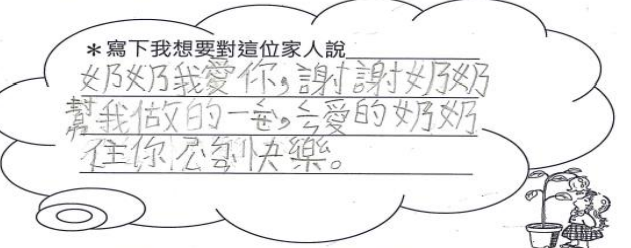 ＊寫下我想要對這位家人說
奶奶我愛你，謝謝奶奶
幫我做的一
愛的奶奶
你 快樂。